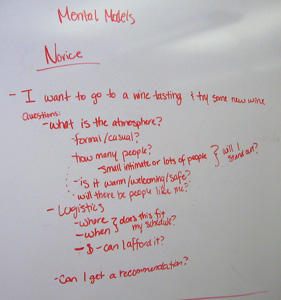 Mental Models
Novice
- I want to go to a wine tasting & try some new wine
Questions:
- what is the atmosphere?
- formal/casual?
- how many people?
- small intimate or lots of people } will I stand out?
- is it warm/welcoming/safe?
- will there be people like me?
- Logistics
- where } does this fit
- when } my schedule?
- $ - can I afford it?
- Can I get a recommendation?